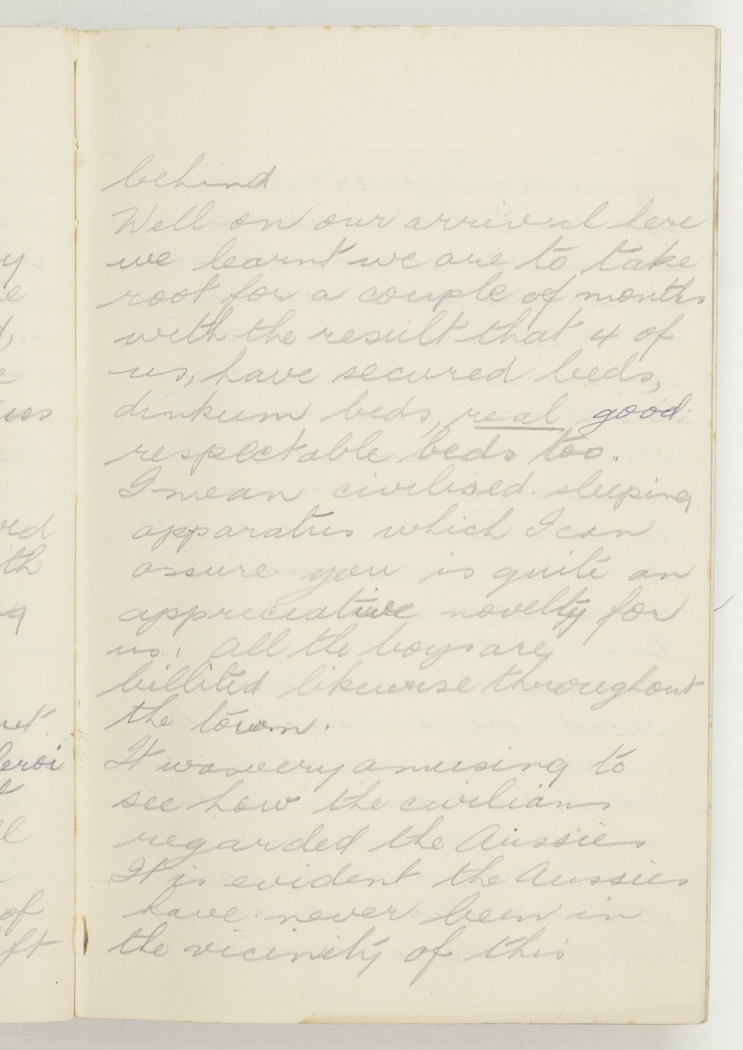 behind
Well on our arrival here
we learnt we are to take
root for a couple of months
with the result that 4 of
us, have secured beds,
dinkum beds, real good
respectable beds too.
I mean civilised sleeping
apparatus which I can
assure you is quite an
appreciative novelty for
us. All the boys are
billited likewise throughout
the town.
It was very amusing to
see how the civilians
regarded the Aussies
It is evident the Aussies
have never been in
the vicinity of this